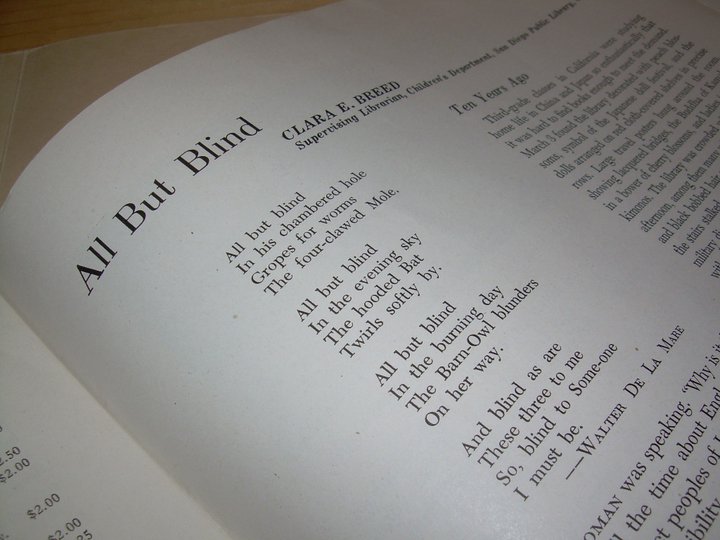 All But Blind
CLARA E. BREED
Supervising Librarian, Children's Department, San Diego Public Library,
All but blind
In his chambered hole
Gropes for worms
The four-clawed Mole.
All but blind
In the evening sky
The hooded Bat
Twirls softly by.
All but blind
In the burning day
The Barn-Owl blunders
On her way.
And blind as are
These three to me
So, blind to Some-one
I must be.
—WALTER DE LA MARE
OMAN was speaking "Why is it
the time about Engl
et peoples of
ibility
Ten Years Ago
Third-grade classes in California were studying
home life in China and Japan so enthusiastically that
it was hard to find books enough to meet the demand.
March 3 found the library decorated with peach blos-
soms, symbol of the Japanese doll festival, and the
dolls arranged on red cloth-covered shelves in precise
rows. Large travel posters hung around the room,
showing lacquered bridges, the Buddha of
in a bower of cherry blossoms, and
kimonos. The library was crowded
afternoon, among them many
and black bobbed hair
the stairs stalled
military
.50
$2.00
$2.00
$2.00
25